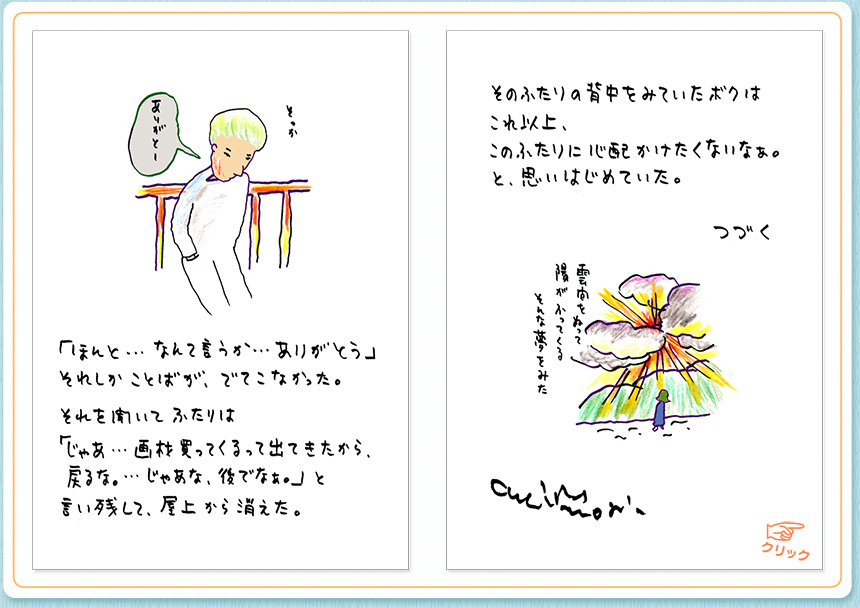 そっか
ありがとー
「ほんと…なんて言うか…ありがとう」
それしかことばが、でてこなかった。
それを聞いてふたりは
「じゃあ…画材買ってくるって出てきたから、
戻るな。…じゃあな、後でなぁ。」と
言い残して、屋上から消えた。
そのふたりの背中をみていたボクは
これ以上、
このふたりに心配かけたくないなぁ。
と、思いはじめていた。
つづく
雲間をぬって
陽がふってくる
そんな夢をみた
クリック